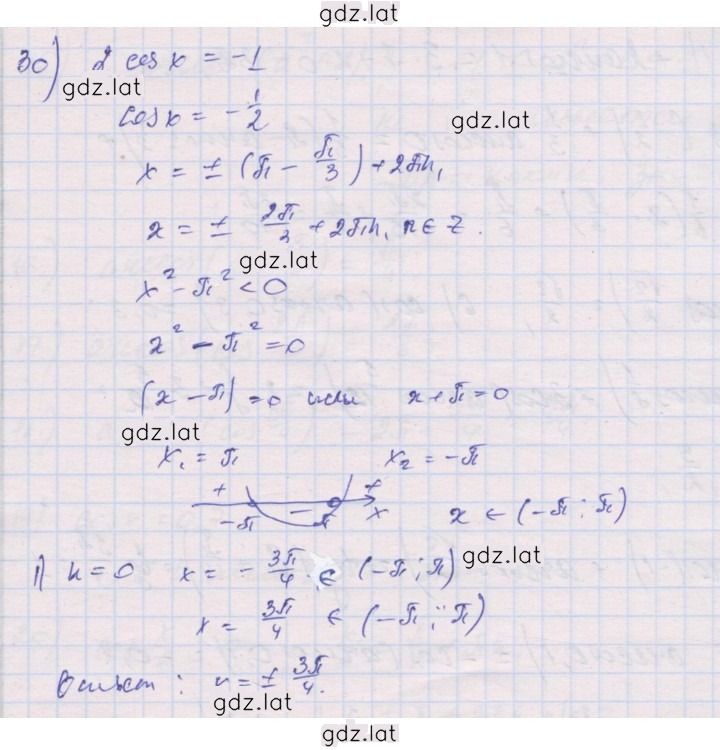 gdz.lat
30) 2 cos x = -1
gdz.lat
cos x = -1/2
gdz.lat
x = ± (π - π/3) + 2πn,
x = ± 2π/3 + 2πn, n ∈ Z.
gdz.lat
x² - π² < 0
x² - π² = 0
(x - π) = 0 или x + π = 0
gdz.lat
x₁ = π x₂ = -π
+ - +
-π π x x ∈ (-π; π)
gdz.lat
1) n = 0 x = -3π/4 ∈ (-π; π)
x = 3π/4 ∈ (-π; π)
Ответ: x = ± 3π/4.
gdz.lat
gdz.lat